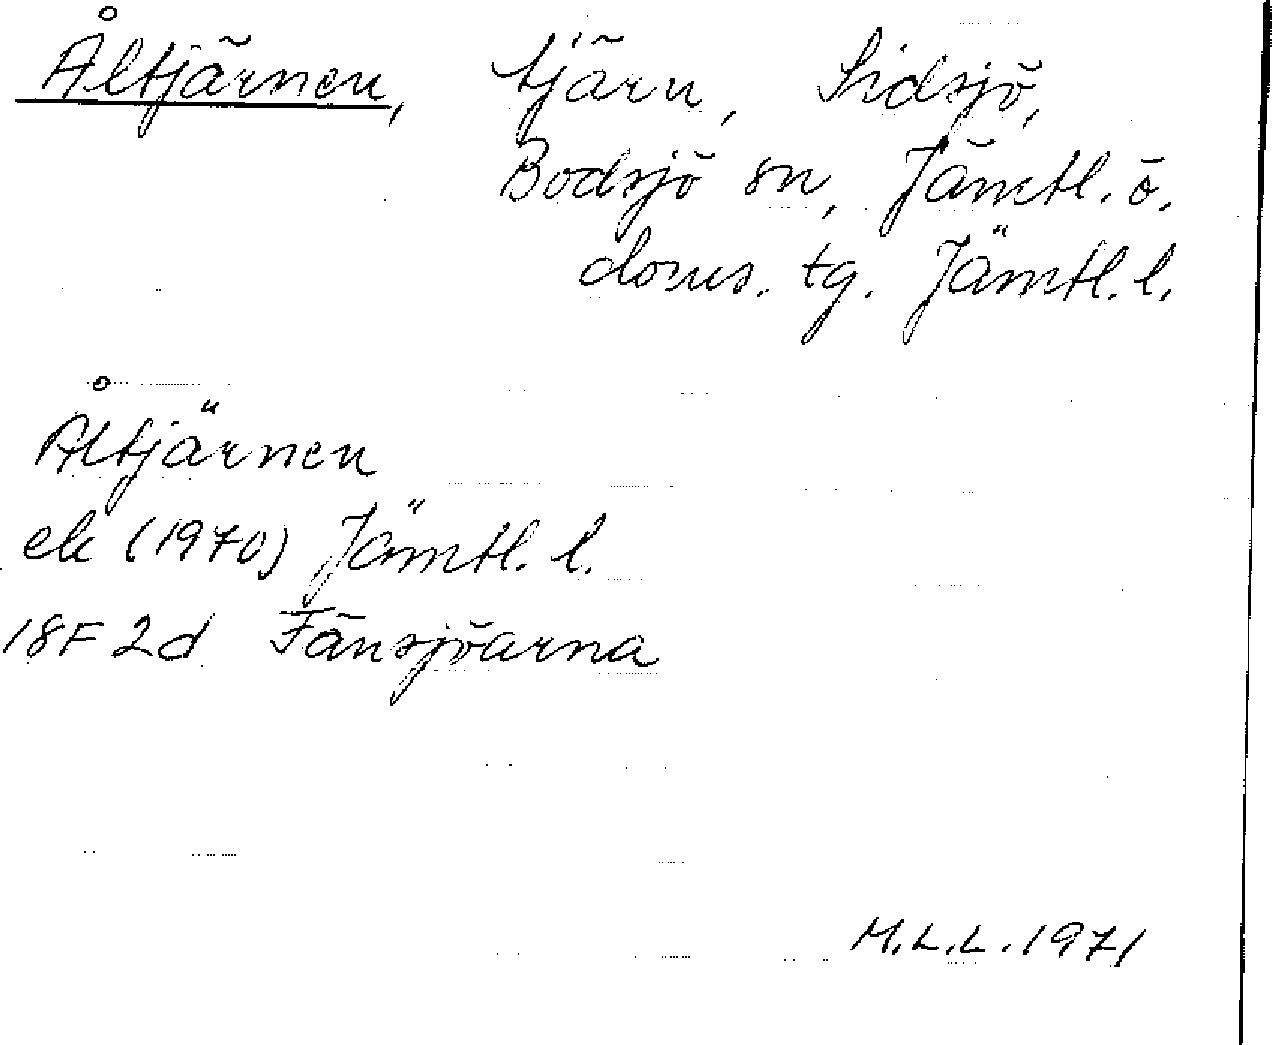 Åltjärnen, tjärn, Sidsjö,
Bodsjö sn, Jämtl. ö.
doms. tg. Jämtl. l.
Åltjärnen
ek (1970) Jämtl. l.
18F 2d Fänsjöarna
M.L.L. 1971